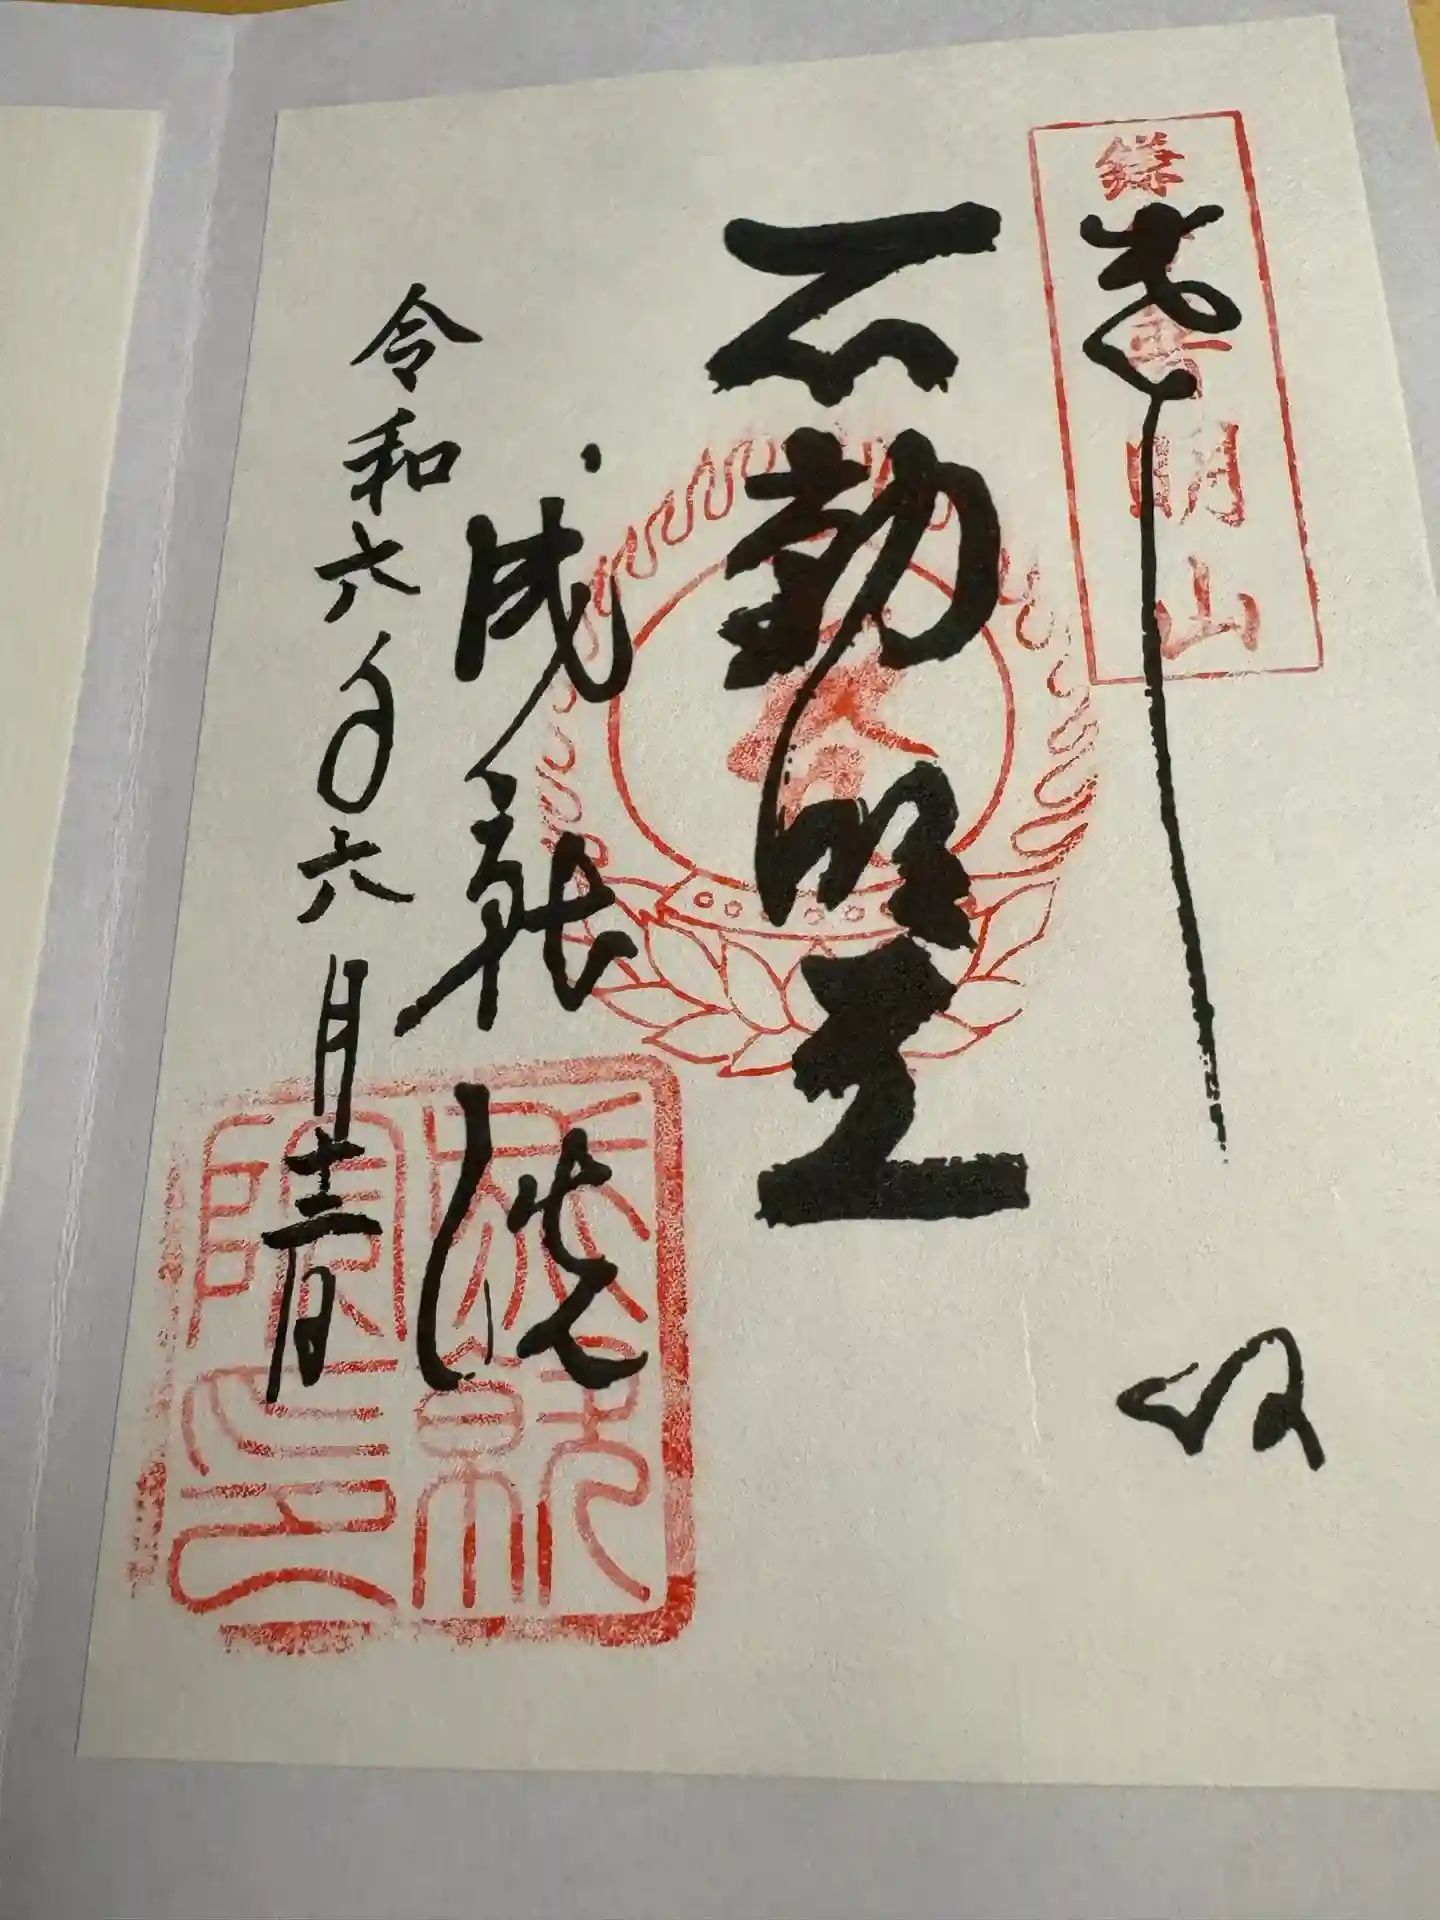 奉拝
鎌倉普明山
不動明王
成就院
令和六年六月十二日